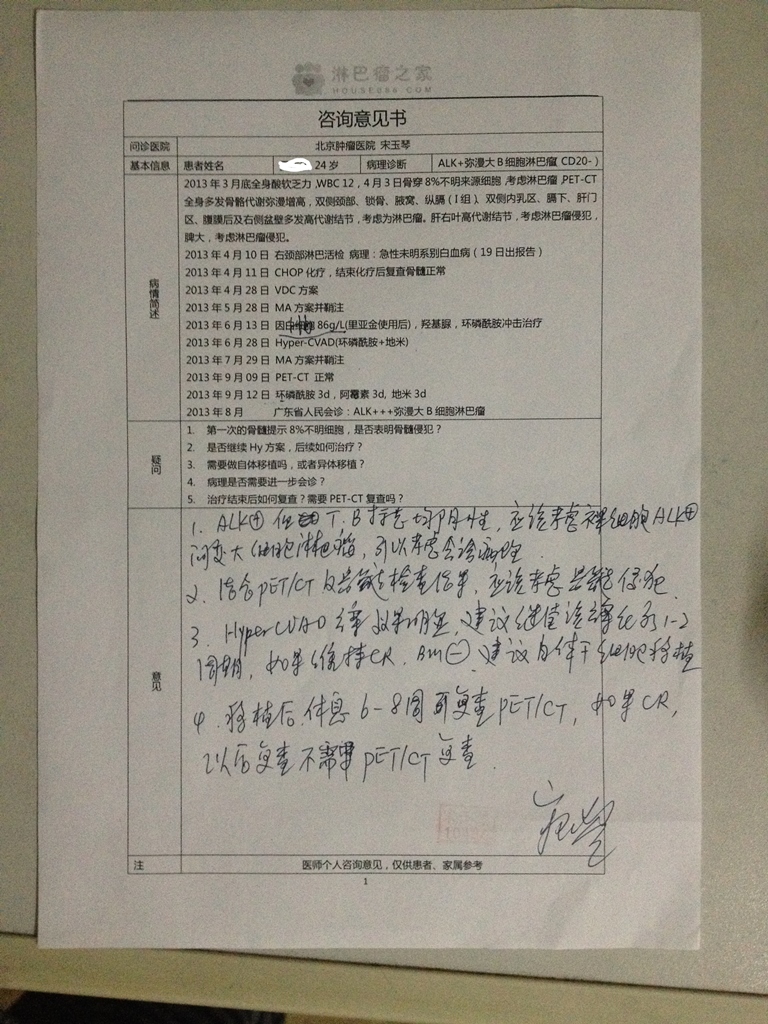 淋巴瘤之家
HOUSE086.COM
咨询意见书
问诊医院 北京肿瘤医院 宋玉琴
基本信息 患者姓名 24 岁 病理诊断 ALK+弥漫大 B 细胞淋巴瘤( CD20- )
病情简述
2013 年 3 月底全身酸软乏力 ,WBC 12 , 4 月 3 日骨穿 8%不明来源细胞 ,考虑淋巴瘤 ,PET-CT
全身多发骨骼代谢弥漫增高，双侧颈部、锁骨、腋窝、纵膈（I 组）、双侧内乳区、膈下、肝门
区、腹膜后及右侧盆壁多发高代谢结节，考虑为淋巴瘤。肝右叶高代谢结节，考虑淋巴瘤侵犯，
脾大，考虑淋巴瘤侵犯。
2013 年 4 月 10 日 右颈部淋巴活检 病理：急性未明系别白血病（ 19 日出报告）
2013 年 4 月 11 日 CHOP 化疗，结束化疗后复查骨髓正常
2013 年 4 月 28 日 VDC 方案
2013 年 5 月 28 日 MA 方案并鞘注
2013 年 6 月 13 日 因 Hb 86g/L(里亚金使用后)，羟基脲，环磷酰胺冲击治疗
2013 年 6 月 28 日 Hyper-CVAD(环磷酰胺+地米)
2013 年 7 月 29 日 MA 方案并鞘注
2013 年 9 月 09 日 PET-CT 正常
2013 年 9 月 12 日 环磷酰胺 3d , 阿霉素 3d, 地米 3d
2013 年 8 月 广东省人民会诊：ALK+++弥漫大 B 细胞淋巴瘤
疑问
1. 第一次的骨髓提示 8%不明细胞，是否表明骨髓侵犯？
2. 是否继续 Hy 方案，后续如何治疗？
3. 需要做自体移植吗，或者异体移植？
4. 病理是否需要进一步会诊？
5. 治疗结束后如何复查？需要 PET-CT 复查吗？
意见
1. ALK⊕ 但 T、B 标志均阴性, 应该考虑裸细胞 ALK⊕
间变大细胞淋巴瘤, 可以考虑会诊病理.
2. 结合 PET/CT 及骨髓检查结果, 应该考虑骨髓侵犯.
3. HyperCVAD 方案效果明显, 建议继续该方案化疗1-2
周期, 如果维持CR, BM⊖, 建议自体干细胞移植
4. 移植后, 休息 6-8周 可复查 PET/CT, 如果 CR,
以后复查不需要 PET/CT 复查.
注 医师个人咨询意见，仅供患者、家属参考
1